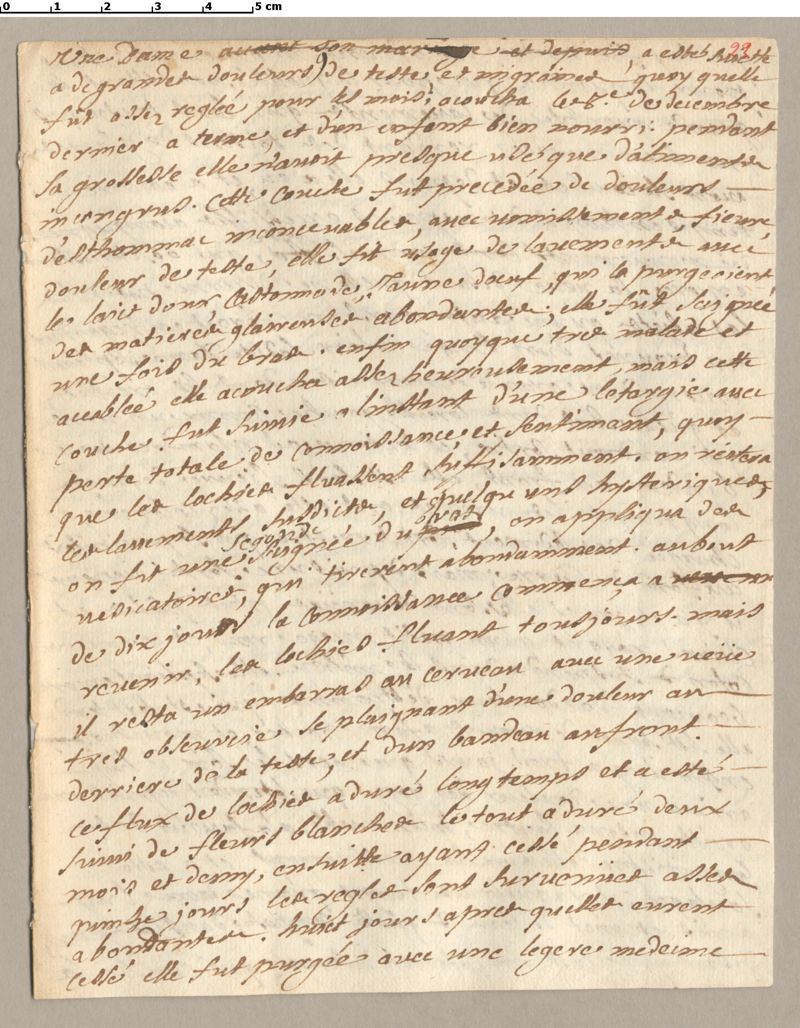 0 1 2 3 4 5 cm
99
Une Dame avant son mariage et depuis, a esté sujette
a de grandes douleurs de teste et migraines quoy quelle
fut assez reglée pour les mois; acoucha le 8.e de decembre
dernier a terme, et d'un enfant bien nourri. pendant
sa grossesse elle n'avoit presque usé que d'alimentes
incongrus. cette couche fut precedée de douleurs
d'esthommac inconcevables, avec vomissements fievre
douleur de teste, elle fit usage de lavements avec
le laict doux Castonnade, Jaune d'oeuf, qui la purgeoient
des matieres glaireuses abondantes; elle fût saignée
une fois du bras. enfin quoyque tres malade et
accablée elle acoucha assez heureusement, mais cette
couche fut suivie a l'instant d'une letargie avec
perte totale de connoissance et sentiment, quoy-
que les lochies fluassent suffisamment. on réitera
les lavements susdits, et quelqu'uns hysteriques,
on fit une segonde saignée du bras, on appliqua des
vesicatoires, qui tirerent abondamment. au bout
de dix jours la connoissance commença a
revenir, les lochies fluant tousjours. mais
il resta un embarras au cerveau avec une veüe
tres obscurcie se plaignant d'une douleur au
derriere de la teste, et d'un bandeau au front.
ce flux de lochies a duré longtemps et a esté
suivi de fleurs blanches le tout a duré deux
mois et demy, ensuitte ayant cessé pendant
quinze jours les regles sont survenües assez
abondantes. huict jours apres quelles eurent
cessé elle fut purgée avec une legere medecine